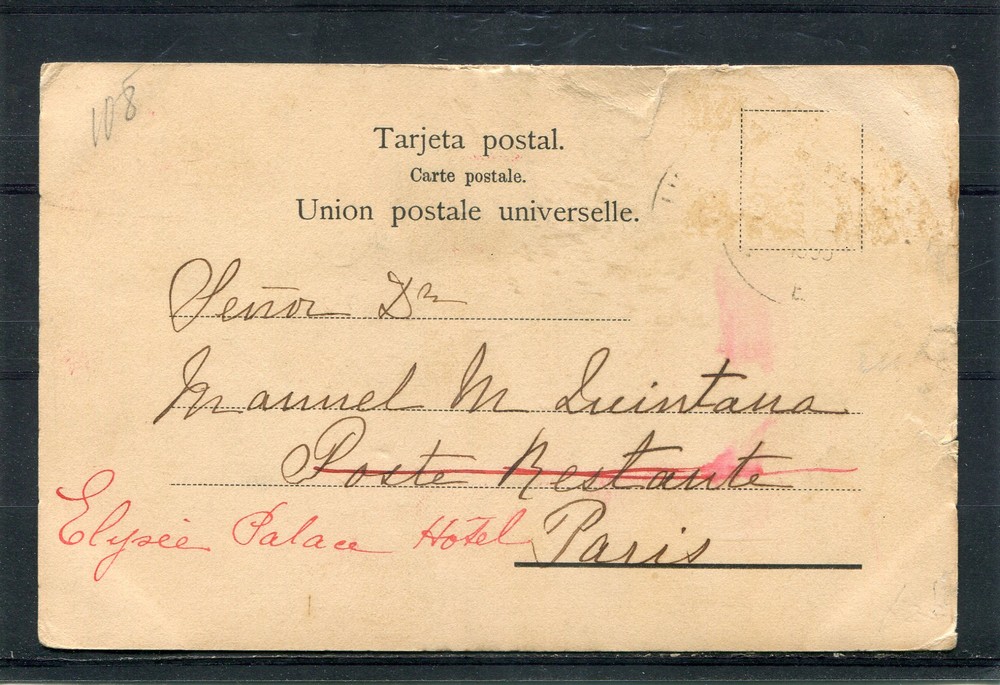 108
Tarjeta postal.
Carte postale.
Union postale universelle.
Señor Dr
Manuel M Quintana
Poste Restante
Elysée Palace Hôtel
Paris